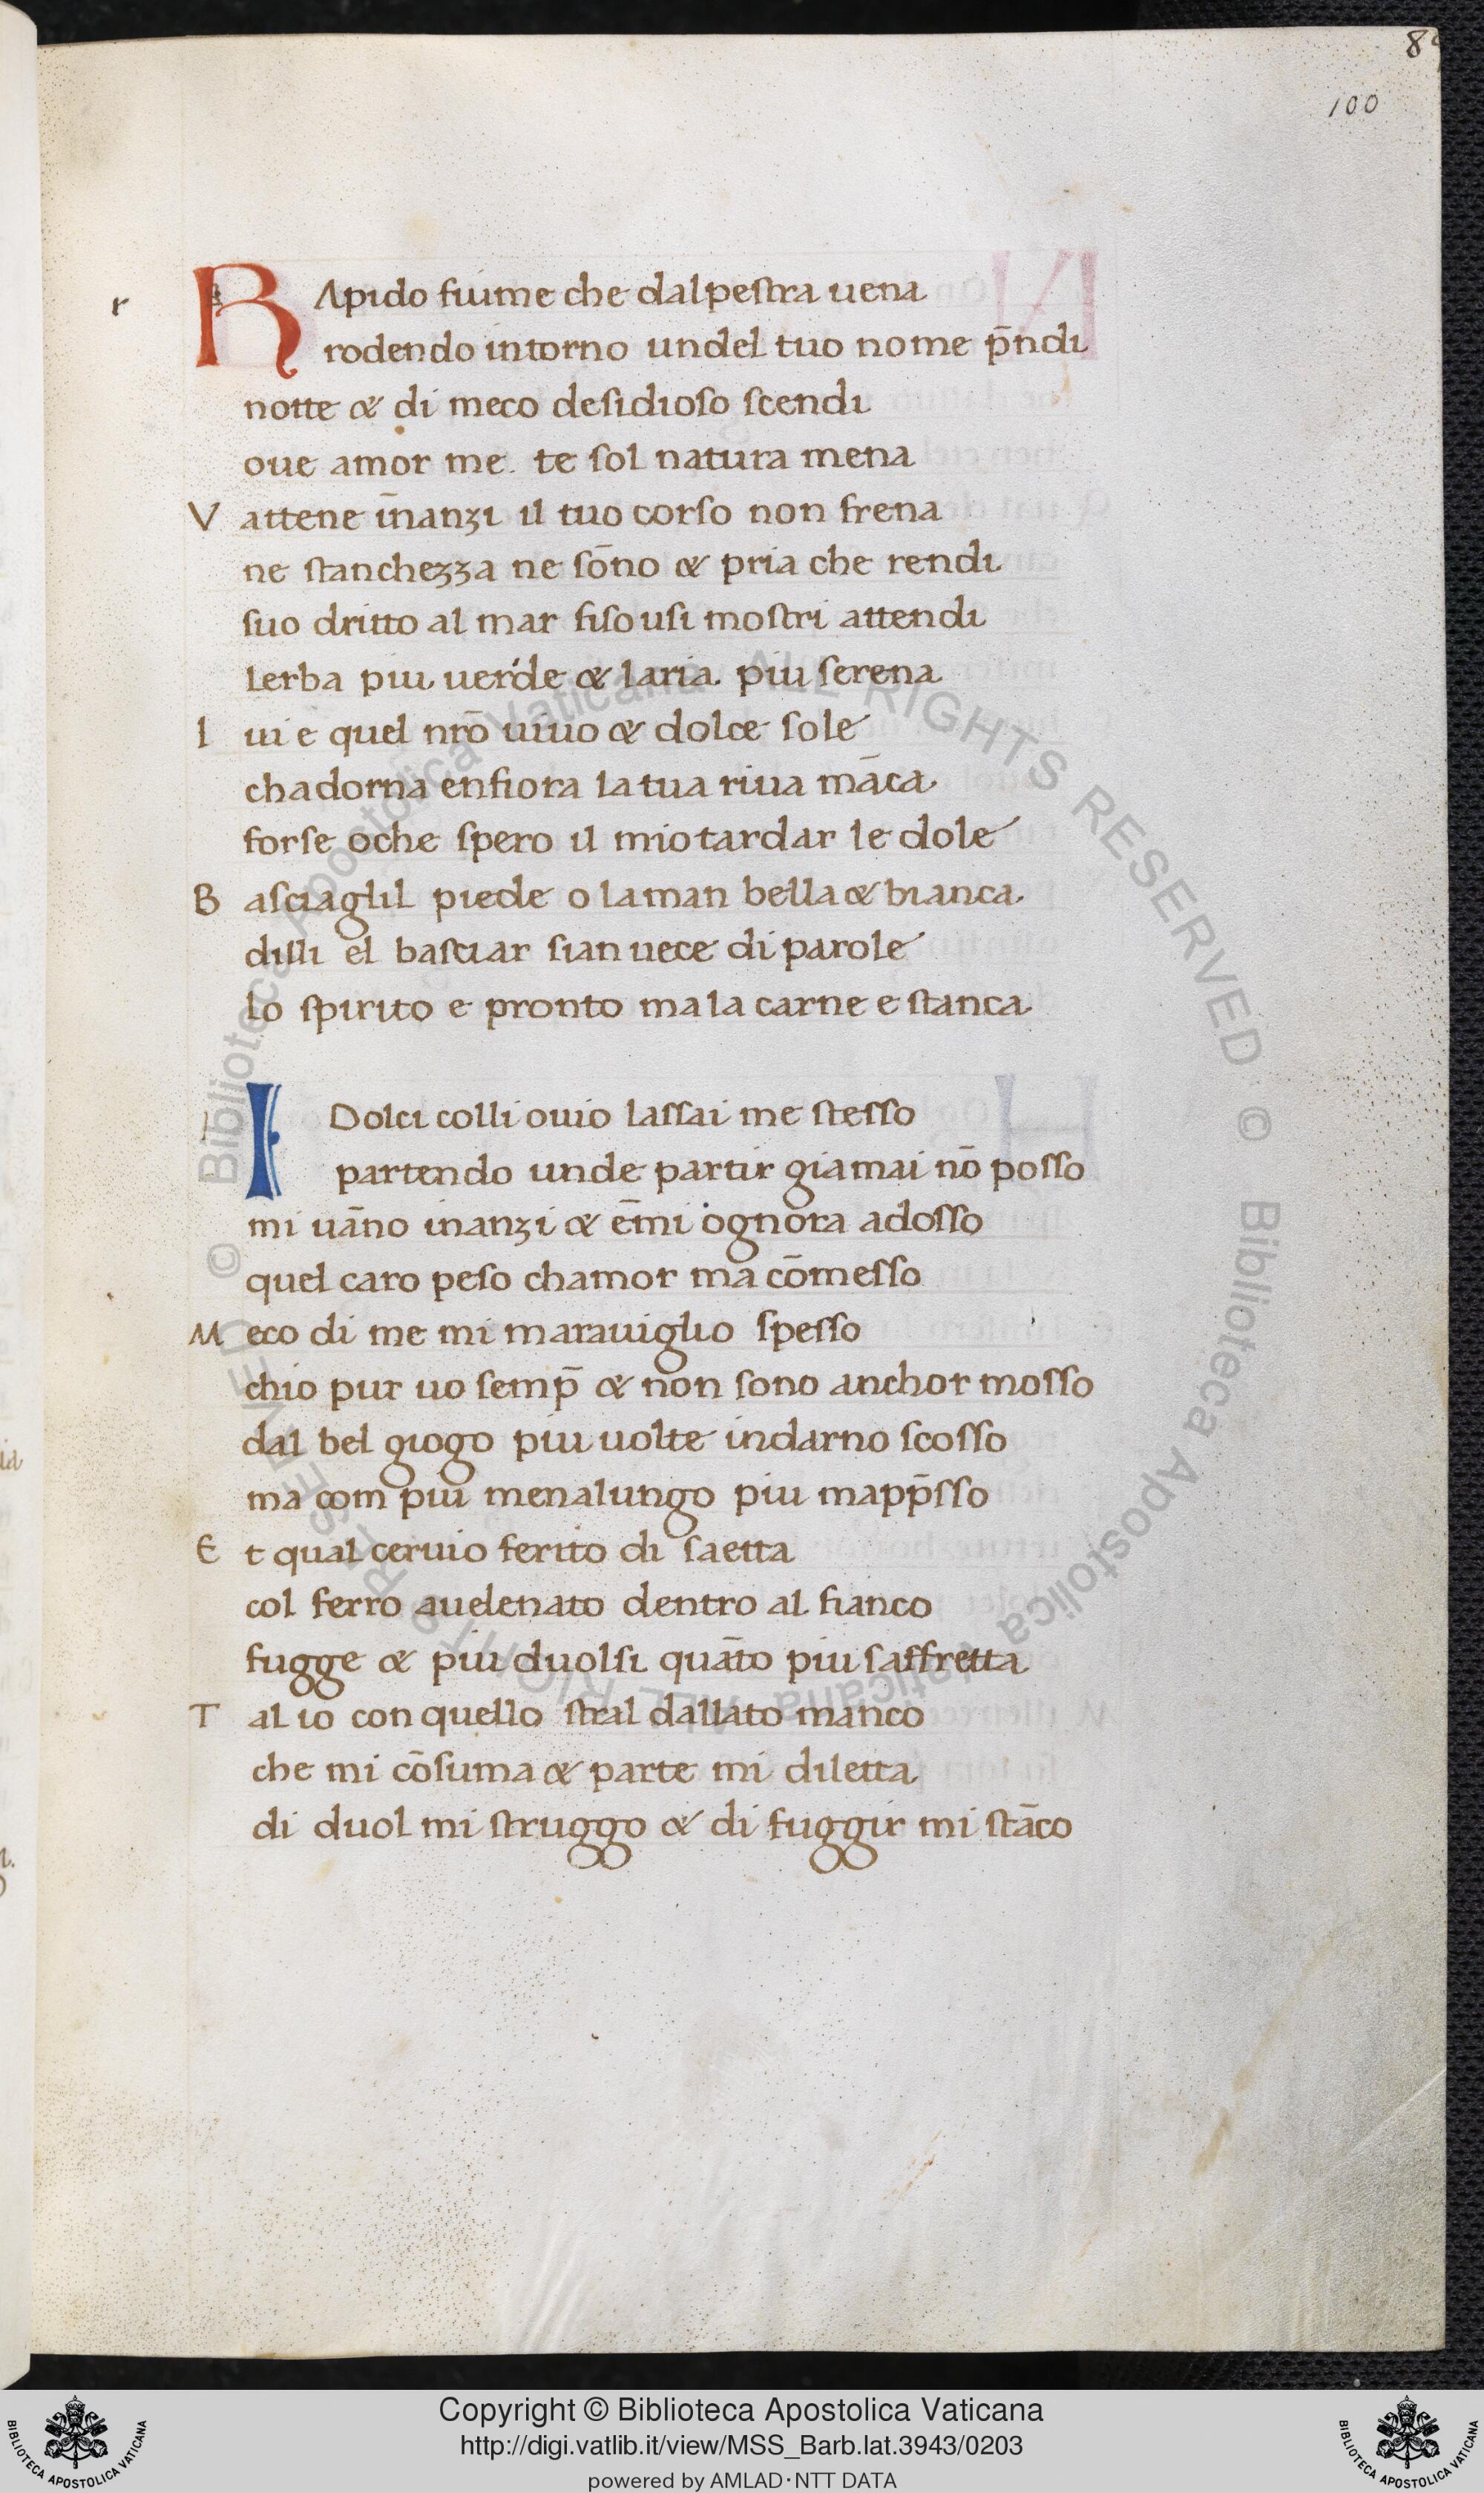 100
r
RApido fiume che dalpestra uena
rodendo intorno undel tuo nome p̄ndi
notte & di meco desidioso scendi
oue amor me. te sol natura mena
Vattene in̄anzi il tuo corso non frena
ne stanchezza ne so̅no & pria che rendi
suo dritto al mar fiso usi mostri attendi
Lerba piu uerde & laria piu serena
Iui e quel nr̅o uiuo & dolce sole
chadorna enfiora la tua riua ma̅ca
forse oche spero il mio tardar le dole
Basciaglil piede o la man bella & bianca
dilli el basciar sian uece di parole
lo spirito e pronto ma la carne e stanca
I Dolci colli ouio lassai me stesso
partendo unde partir giamai no̅ posso
mi ua̅no inanzi & e̅mi ognora adosso
quel caro peso chamor ma co̅messo
Meco di me mi marauiglio spesso
chio pur uo semp̄ & non sono anchor mosso
dal bel giogo piu uolte indarno scosso
ma com piu menalungo piu mapp̄sso
Et qual ceruio ferito di saetta
col ferro auelenato dentro al fianco
fugge & piu duolsi qua̅to piu saffretta
Tal io con quello stral dallato manco
che mi co̅suma & parte mi diletta
di duol mi struggo & di fuggir mi sta̅co
© Biblioteca Apostolica Vaticana ALL RIGHTS RESERVED
© Biblioteca Apostolica Vaticana ALL RIGHTS RESERVED
BIBLIOTECA APOSTOLICA VATICANA
Copyright © Biblioteca Apostolica Vaticana
http://digi.vatlib.it/view/MSS_Barb.lat.3943/0203
powered by AMLAD·NTT DATA
BIBLIOTECA APOSTOLICA VATICANA